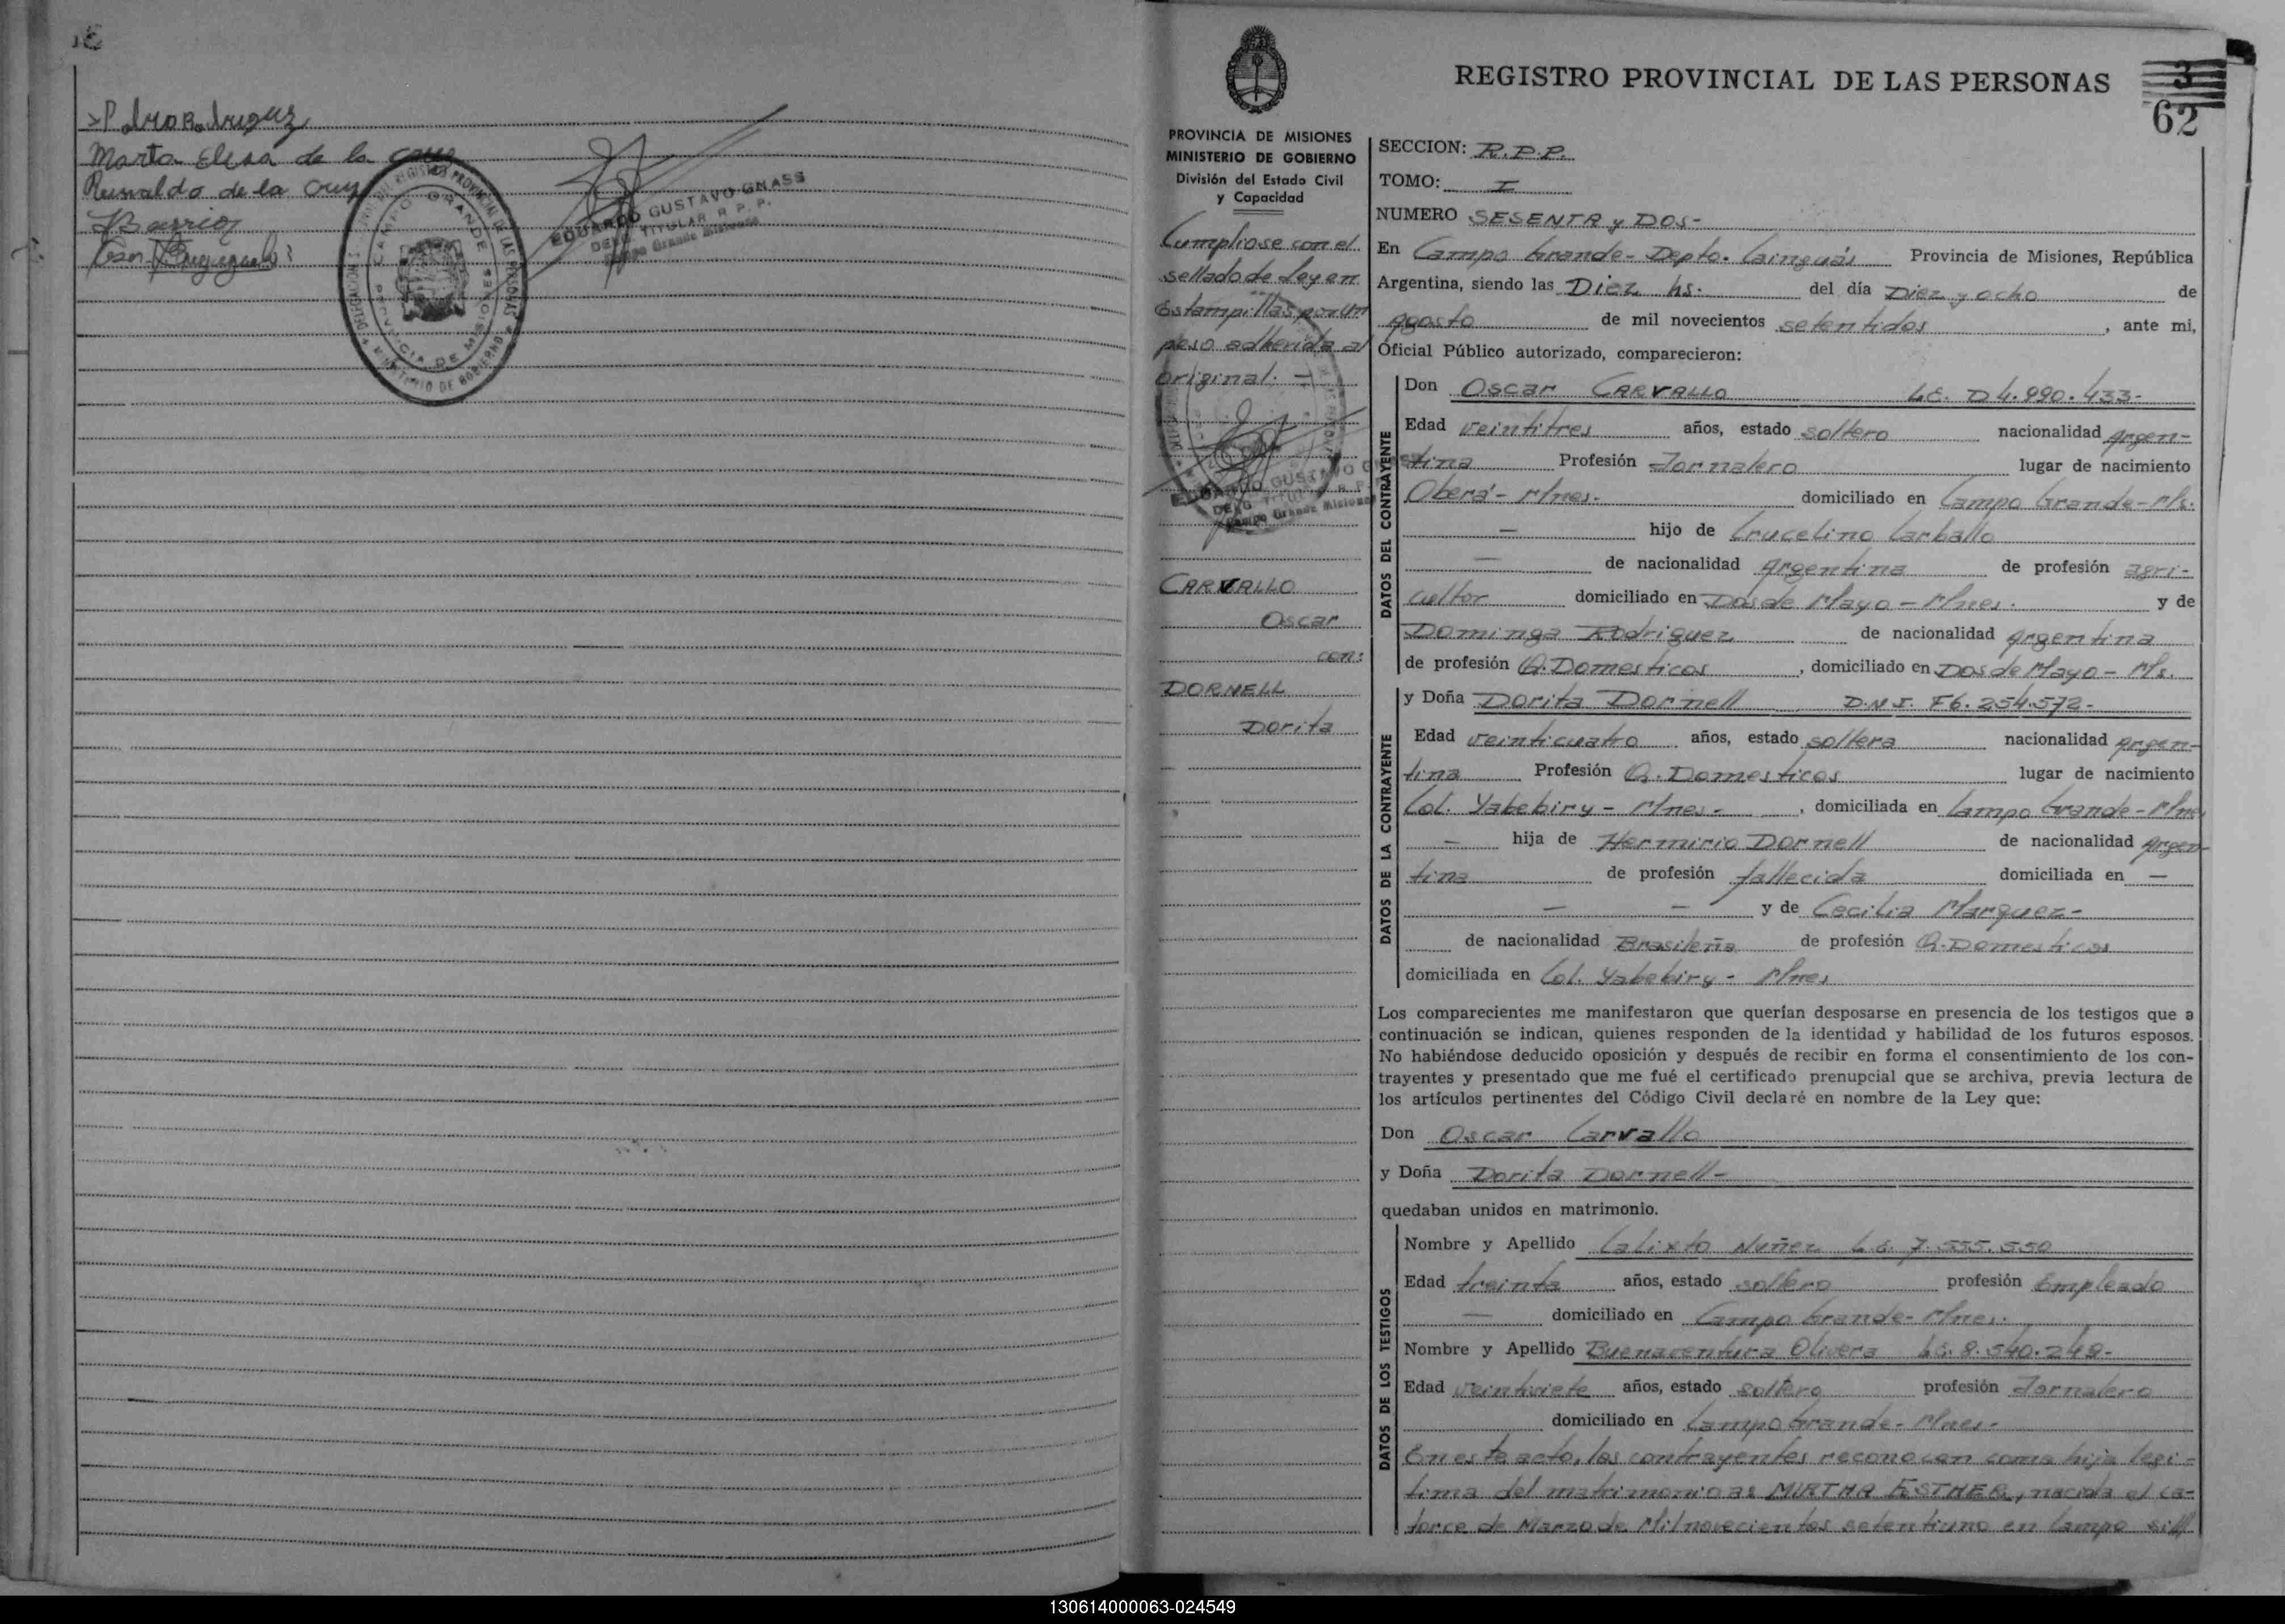 Marta Elisa de la Cruz
Reinaldo de la Cruz
Barrios
DELEGACIONES REGISTRO PROVINCIAL DE LAS PERSONAS
MINISTERIO DE GOBIERNO
CAMPO GRANDE
PROVINCIA DE MISIONES
EDUARDO GUSTAVO GNASS
DELG. TITULAR R. P. P.
Campo Grande Misiones
REGISTRO PROVINCIAL DE LAS PERSONAS
3
62
PROVINCIA DE MISIONES
MINISTERIO DE GOBIERNO
División del Estado Civil
y Capacidad
Cumpliose con el
sellado de Ley en
Estampillas por un
peso adherida al
original. -
EDUARDO GUSTAVO GNASS
DELG. TITULAR R. P. P.
Campo Grande Misiones
CARVALLO
Oscar
con:
DORNELL
Dorita
SECCION: R.P.P.
TOMO: I
NUMERO SESENTA y DOS-
En Campo Grande - Depto. Cainguás Provincia de Misiones, República
Argentina, siendo las Diez hs. del día Diez y ocho de
Agosto de mil novecientos setentidos, ante mi,
Oficial Público autorizado, comparecieron:
DATOS DEL CONTRAYENTE
Don Oscar CARVALLO L.E. D 4.990.433-
Edad veintitres años, estado soltero nacionalidad Argen-
tina Profesión Jornalero lugar de nacimiento
Oberá - Mnes. domiciliado en Campo Grande - Ms.
— hijo de Crucelino Carballo
— de nacionalidad Argentina de profesión agri-
cultor domiciliado en Dos de Mayo - Mnes. y de
Dominga Rodriguez de nacionalidad Argentina
de profesión Q. Domesticos, domiciliado en Dos de Mayo - Ms.
DATOS DE LA CONTRAYENTE
y Doña Dorita Dornell D.N.I. F6.254.572-
Edad veinticuatro años, estado soltera nacionalidad Argen-
tina Profesión Q. Domesticos lugar de nacimiento
Col. Yabebiry - Mnes -, domiciliada en Campo Grande - Mnes
— hija de Hermirio Dornell de nacionalidad Argen-
tina de profesión fallecida domiciliada en —
— — y de Cecilia Marquez -
de nacionalidad Brasileña de profesión Q. Domesticos
domiciliada en Col. Yabebiry - Mnes
Los comparecientes me manifestaron que querían desposarse en presencia de los testigos que a
continuación se indican, quienes responden de la identidad y habilidad de los futuros esposos.
No habiéndose deducido oposición y después de recibir en forma el consentimiento de los con-
trayentes y presentado que me fué el certificado prenupcial que se archiva, previa lectura de
los artículos pertinentes del Código Civil declaré en nombre de la Ley que:
Don Oscar Carvallo
y Doña Dorita Dornell -
quedaban unidos en matrimonio.
DATOS DE LOS TESTIGOS
Nombre y Apellido Calixto Nuñez L.E. 7.555.550
Edad treinta años, estado soltero profesión Empleado
— domiciliado en Campo Grande - Mnes.
Nombre y Apellido Buenaventura Olivera L.E. 8.540.249-
Edad veintisiete años, estado soltero profesión Jornalero
domiciliado en Campo Grande - Mnes -
En este acto, los contrayentes reconocen como hija legi-
tima del matrimonio as MIRTHA ESTHER, nacida el ca-
torce de Marzo de Mil novecientos setentiuno en Campo
130614000063-024549